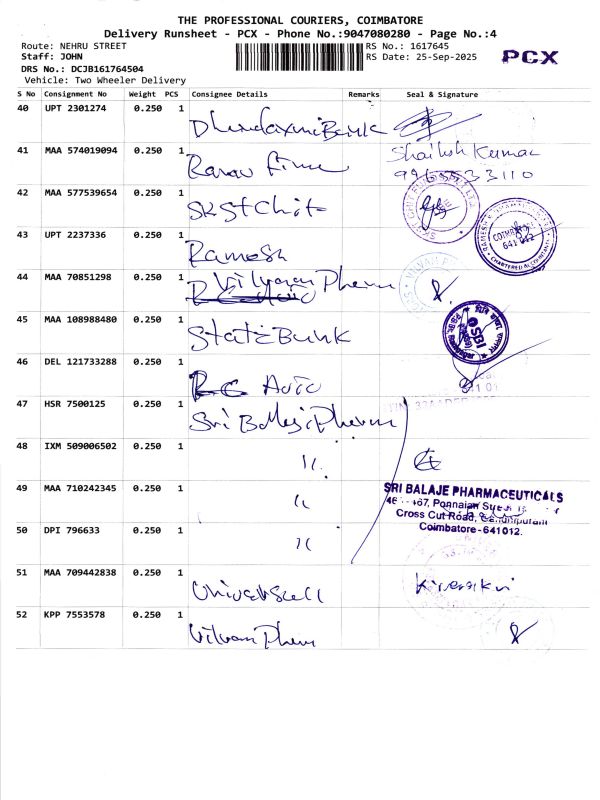 THE PROFESSIONAL COURIERS, COIMBATORE
Delivery Runsheet - PCX - Phone No.:9047080280 - Page No.:4
Route: NEHRU STREET RS No.: 1617645
Staff: JOHN RS Date: 25-Sep-2025 PCX
DRS No.: DCJB161764504
Vehicle: Two Wheeler Delivery
S No Consignment No Weight PCS Consignee Details Remarks Seal & Signature
40 UPT 2301274 0.250 1
41 MAA 574019094 0.250 1 Shailesh Kumar
9965533110
42 MAA 577539654 0.250 1 SKS Chit
43 UPT 2237336 0.250 1 Ramesh
COIMBATORE
641 012
CHARTERED ACCOUNTANTS
44 MAA 70851298 0.250 1 Vilvam Pharm
45 MAA 108988480 0.250 1 State Bank
SBI
46 DEL 121733288 0.250 1 RC Auto
47 HSR 7500125 0.250 1 Sri Balaji Pharm
48 IXM 509006502 0.250 1 ''
49 MAA 710242345 0.250 1 ''
SRI BALAJE PHARMACEUTICALS
Ponnaian Street
Cross Cut Road, Gandhipuram
Coimbatore-641012.
50 DPI 796633 0.250 1 ''
51 MAA 709442838 0.250 1 Universell
52 KPP 7553578 0.250 1 Vilvam Pharm